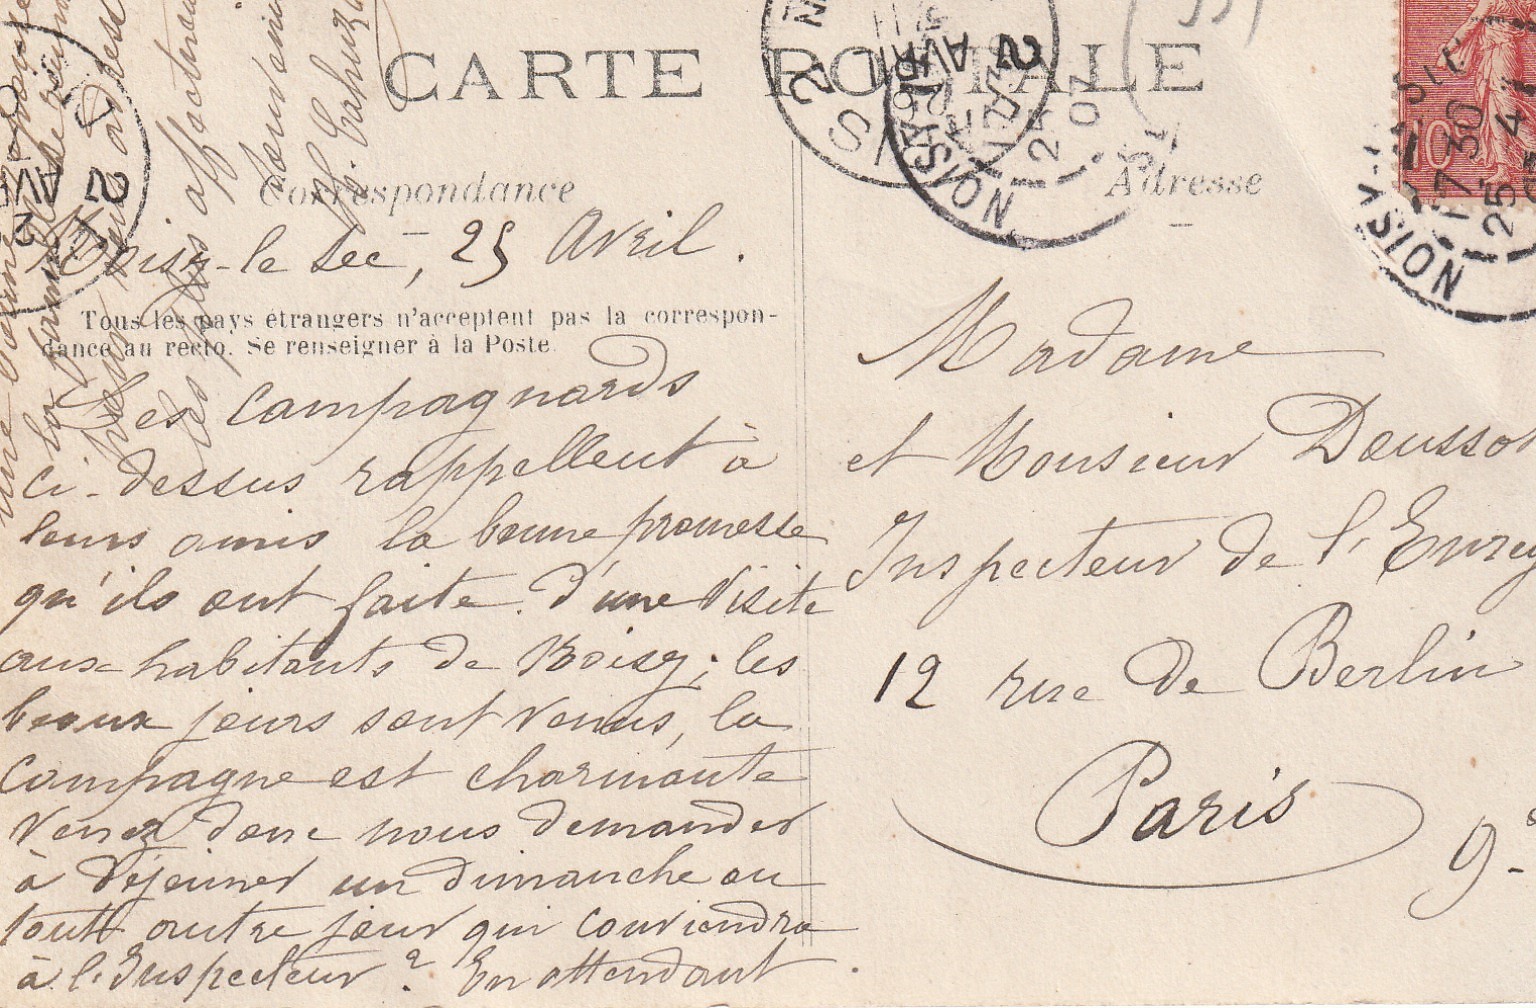 CARTE POSTALE
Correspondance
Adresse
Noisy-le Sec, 25 Avril.
Tous les pays étrangers n'acceptent pas la correspon-
dance au recto. Se renseigner à la Poste.
Les campagnards
ci-dessus rappellent à
leurs amis la bonne promesse
qu'ils ont faite d'une visite
aux habitants de Noisy; les
beaux jours sont venus, la
campagne est charmante
venez donc nous demander
à déjeuner un dimanche ou
tout autre jour qui conviendra
à l'Inspecteur? En attendant
les plus affectueux
Madame
et Monsieur Doussot
Inspecteur de l'Enreg
12 rue de Berlin
Paris
9e
NOISY
17 30
25
07
2
AVR
NOISY
17 30
25
10